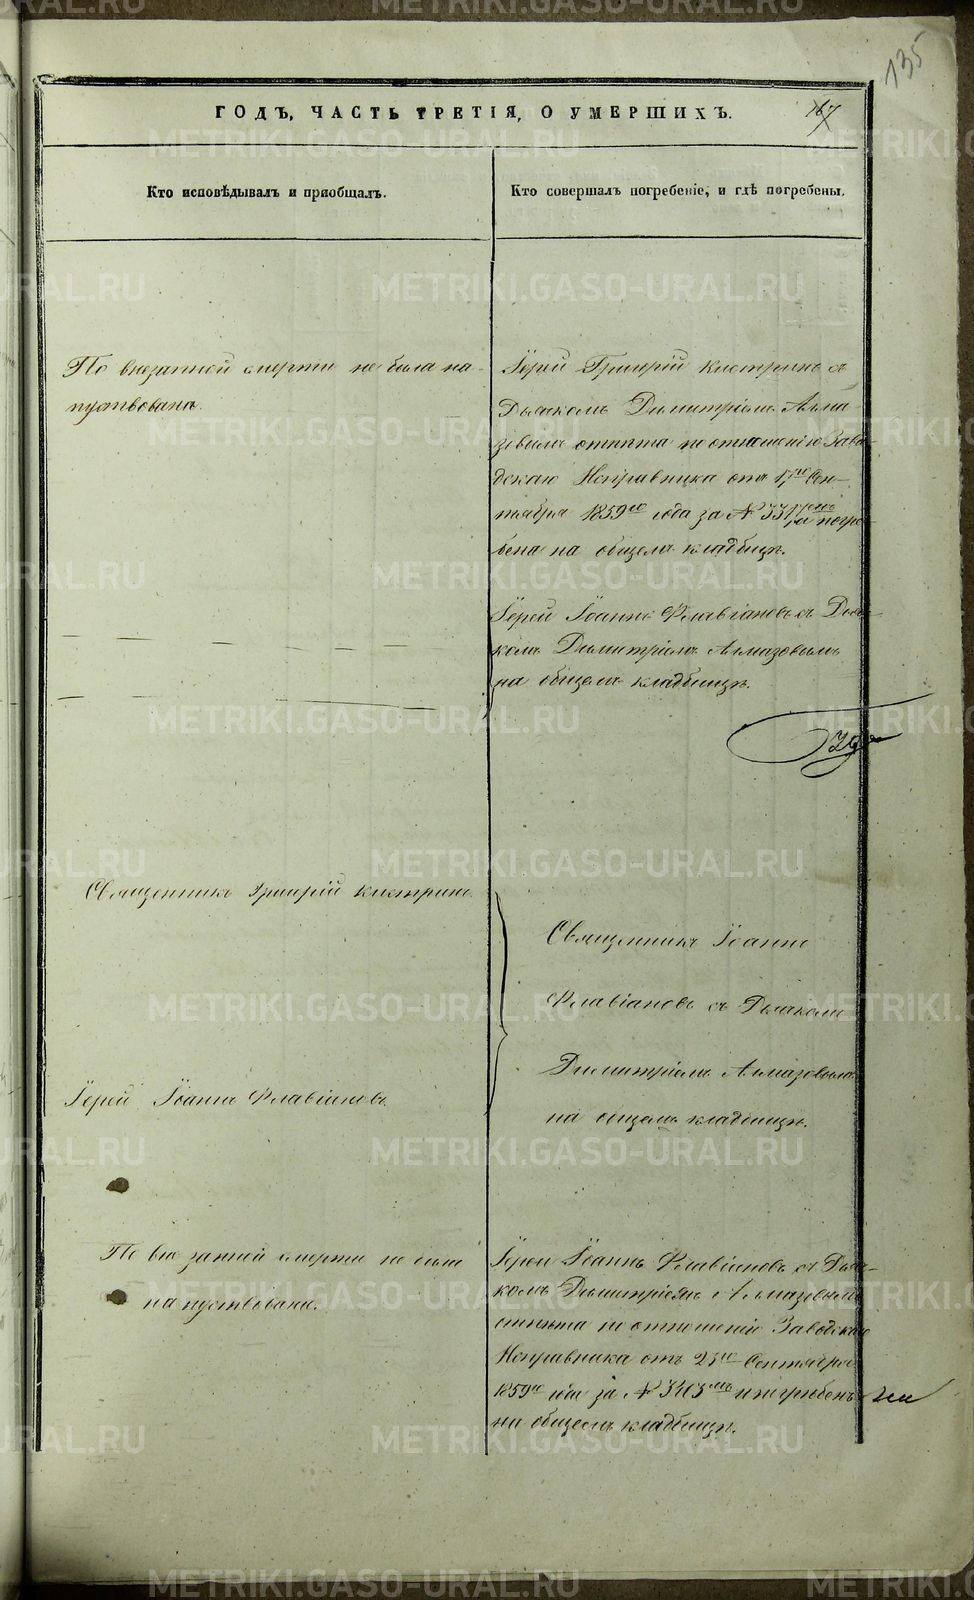 135
ГОДЪ, ЧАСТЬ ТРЕТІЯ, О УМЕРШИХЪ.
167
Кто исповѣдывалъ и пріобщалъ.
Кто совершалъ погребеніе, и гдѣ погребены.
По внезапной смерти не была на-
путвована.
Іерей Григорій Кистринъ съ
Дьякомъ Димитріемъ Алма-
зовымъ отпѣта по отношенію Заво-
дскаго Исправника отъ 17го Сен-
тября 1859го года за № и погре-
бена на общемъ кладбищѣ.
Іерей Іоаннъ Флавіановъ съ Дья-
комъ Димитріемъ Алмазовымъ
на общемъ кладбищѣ.
Священникъ Григорій Кистринъ.
Священникъ Іоаннъ
Флавіановъ съ Дьякомъ
Димитріемъ Алмазовымъ
на общемъ кладбищѣ.
Іерей Іоаннъ Флавіановъ
По внезапной смерти не была
напутвована.
Іерей Іоаннъ Флавіановъ съ Дья-
комъ Димитріемъ Алмазовымъ
отпѣта по отношенію Заводскаго
Исправника отъ 23го Сентября
1859го года за № 3403мъ и погребена
на общемъ кладбищѣ.
METRIKI.GASO-URAL.RU